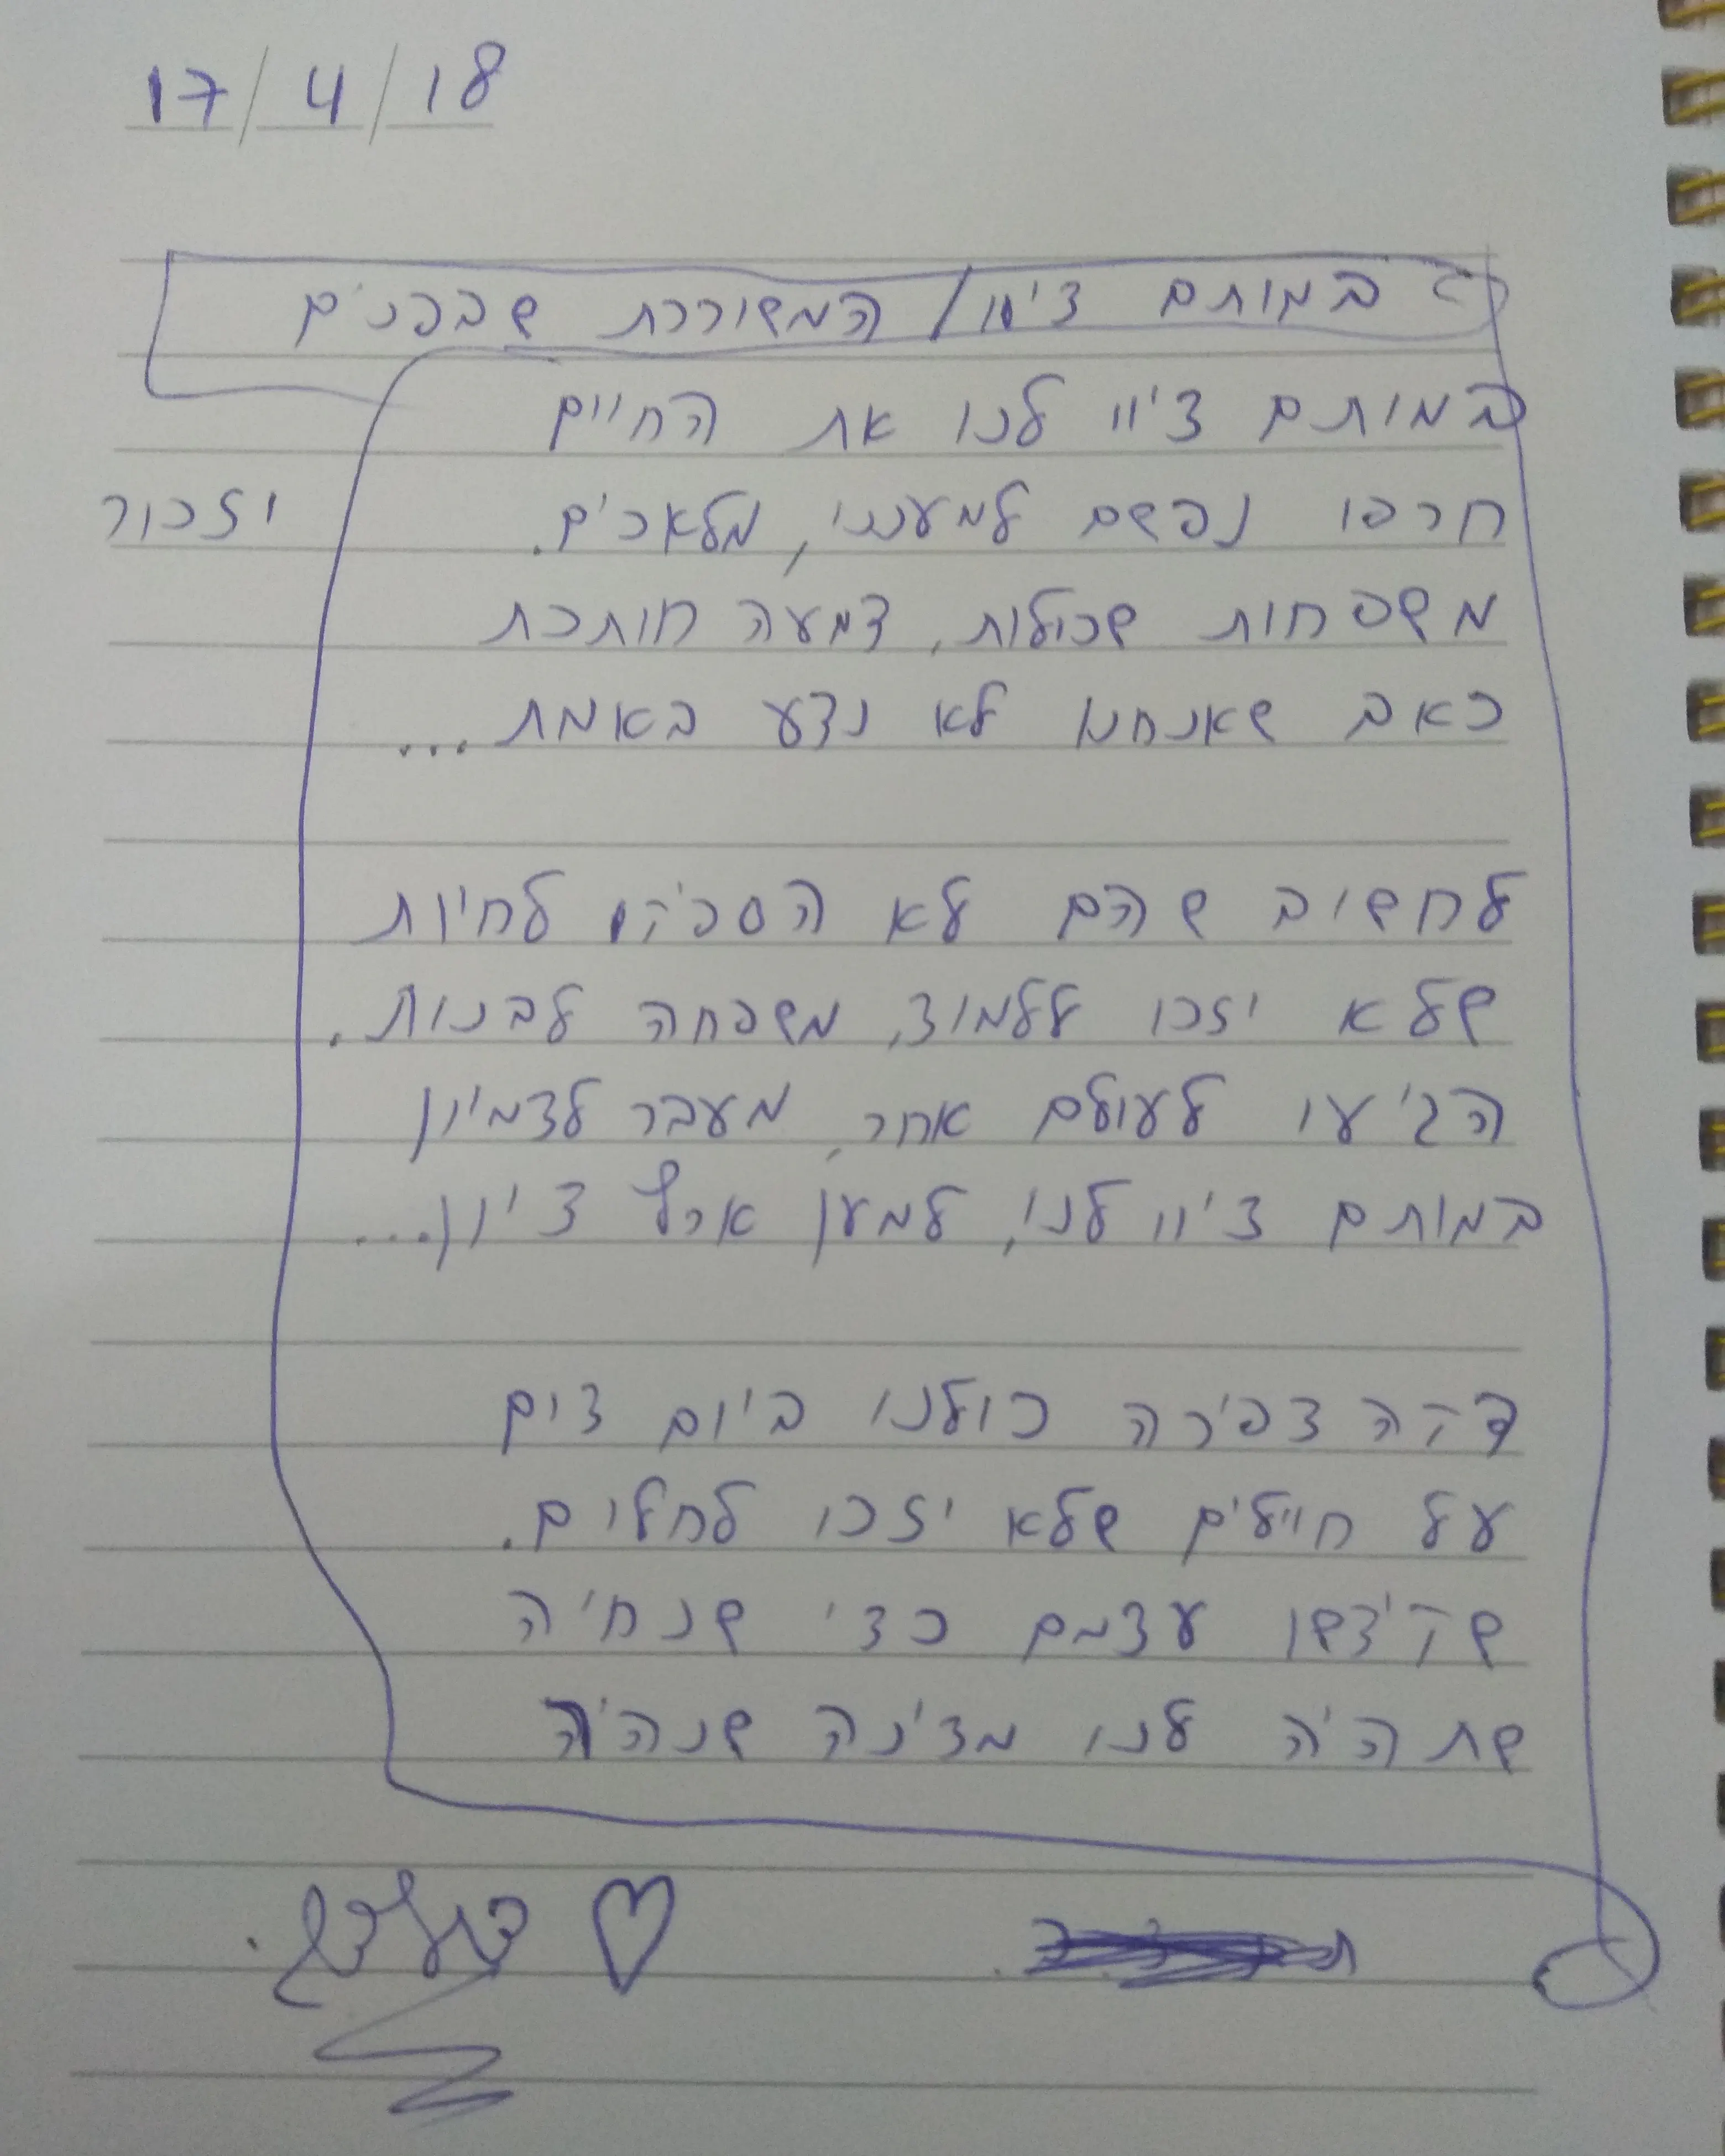 17/4/18
במותם ציוו/ המשוררת שבפנים
במותם ציוו לנו את החיים
חרפו נפשם למעננו, מלאכים.
יזכור
משפחות שכולות, דמעה חותכת
כאב שאנחנו לא נדע באמת...
לחשוב שהם לא הספיקו לחיות
שלא יזכו ללמוד, משפחה לבנות.
הגיעו לעולם אחר, מעבר לדמיון
במותם ציוו לנו, למען ארץ ציון...
דקה צפירה כולנו ביום דום
על חיילים שלא יזכו לחלום.
שקידשו עצמם כדי שנחיה
שתהיה לנו מדינה שנהיה